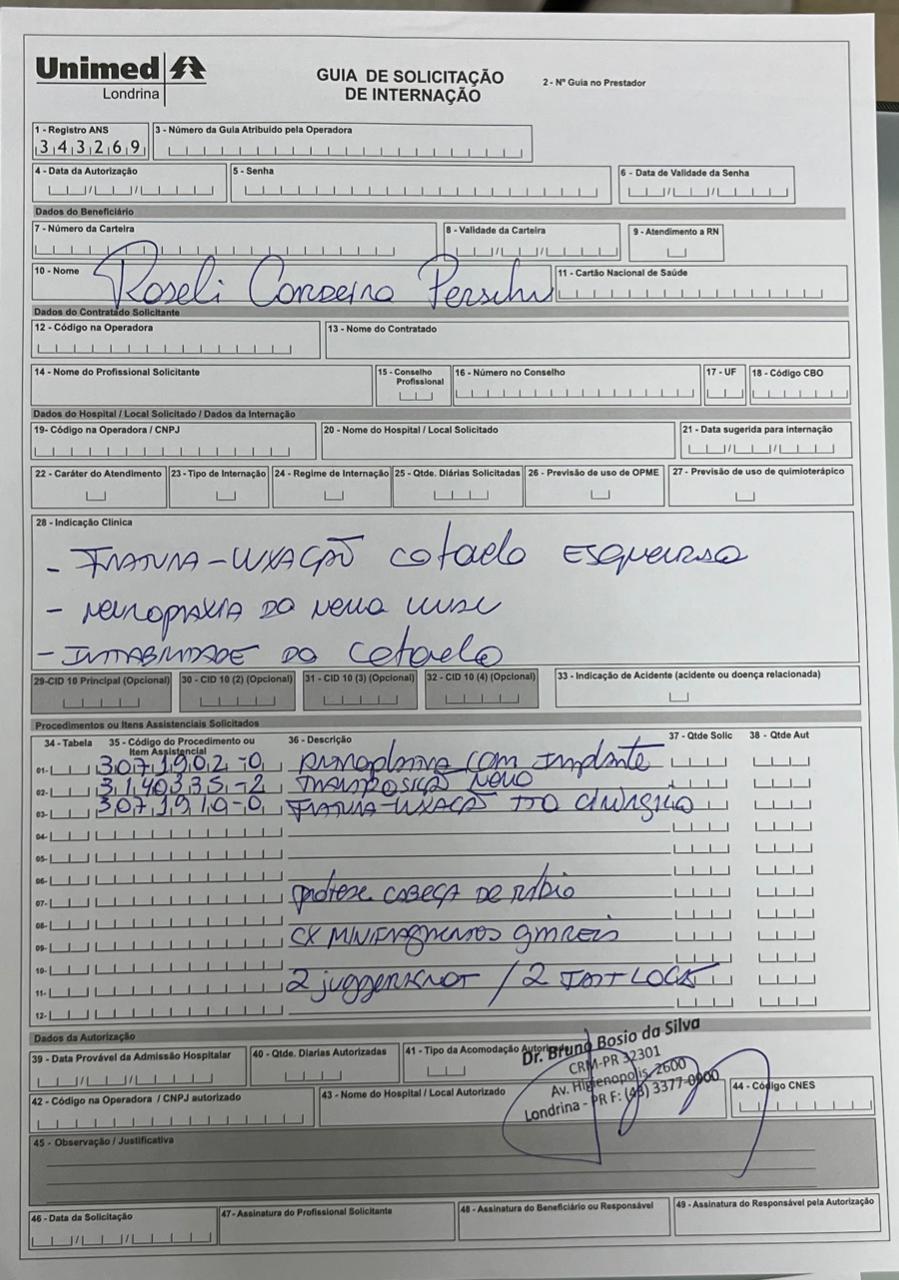 Unimed
Londrina
GUIA DE SOLICITAÇÃO
DE INTERNAÇÃO
2- Nº Guia no Prestador
1 - Registro ANS
343269
3 - Número da Guia Atribuido pela Operadora
4 - Data da Autorização
5 - Senha
6 - Data de Validade da Senha
Dados do Beneficiário
7 - Número da Carteira
8 - Validade da Carteira
9 - Atendimento a RN
10 - Nome
Roseli
11 - Cartão Nacional de Saúde
Dados do Contratado Solicitante
12 - Código na Operadora
13 - Nome do Contratado
14 - Nome do Profissional Solicitante
15 - Conselho Profissional
16 - Número no Conselho
17 - UF
18 - Código CBO
Dados do Hospital / Local Solicitado / Dados da Internação
19- Código na Operadora / CNPJ
20 - Nome do Hospital / Local Solicitado
21 - Data sugerida para internação
22 - Caráter do Atendimento
23 - Tipo de Internação
24 - Regime de Internação
25 - Qtde. Diárias Solicitadas
26 - Previsão de uso de OPME
27 - Previsão de uso de quimioterápico
28 - Indicação Clinica
- FRATURA-LUXAÇÃO cotovelo ESQUERDO
- NEUROPRAXIA DO NERVO
- INSTABILIDADE DO cotovelo
29-CID 10 Principal (Opcional)
30 - CID 10 (2) (Opcional)
31 - CID 10 (3) (Opcional)
32 - CID 10 (4) (Opcional)
33 - Indicação de Acidente (acidente ou doença relacionada)
Procedimentos ou Itens Assistenciais Solicitados
34 - Tabela
35 - Código do Procedimento ou Item Assistencial
36 - Descrição
37 - Qtde Solic
38 - Qtde Aut
01- 3071902-0 com Implante
02- 3140335-2 TRANSPOSIÇÃO
03- 3071910-0 FRATURA-LUXAÇÃO TTO cirúrgico
04-
05-
06-
07- prótese CABEÇA DE RÁDIO
08-
09- CX MINIFRAGMENTOS gmReis
10-
11- 2 juggerknot / 2
12-
Dados da Autorização
39 - Data Provável da Admissão Hospitalar
40 - Qtde. Diarias Autorizadas
41 - Tipo da Acomodação
Dr. Bruno Bosio da Silva
CRM-PR 32301
Av. Higienopolis, 2600
Londrina - PR F: (43) 3377-0900
42 - Código na Operadora / CNPJ autorizado
43 - Nome do Hospital / Local Autorizado
44 - Código CNES
45 - Observação / Justificativa
46 - Data da Solicitação
47- Assinatura do Profissional Solicitante
48 - Assinatura do Beneficiário ou Responsável
49 - Assinatura do Responsável pela Autorização